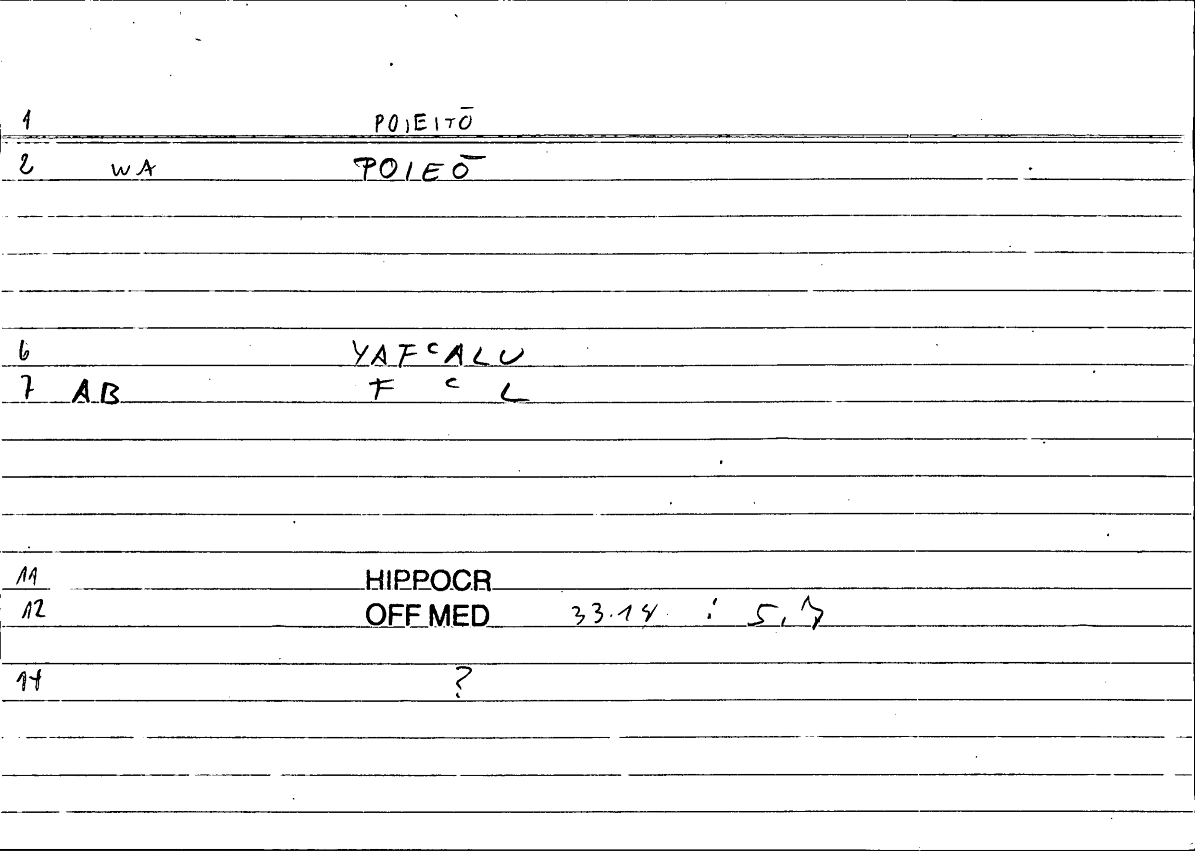 1 POIEITŌ
2 WA POIEŌ
6 YAFᶜALU
7 AB F ᶜ L
11 HIPPOCR
12 OFF MED 33.14 : 5,7
14 ?